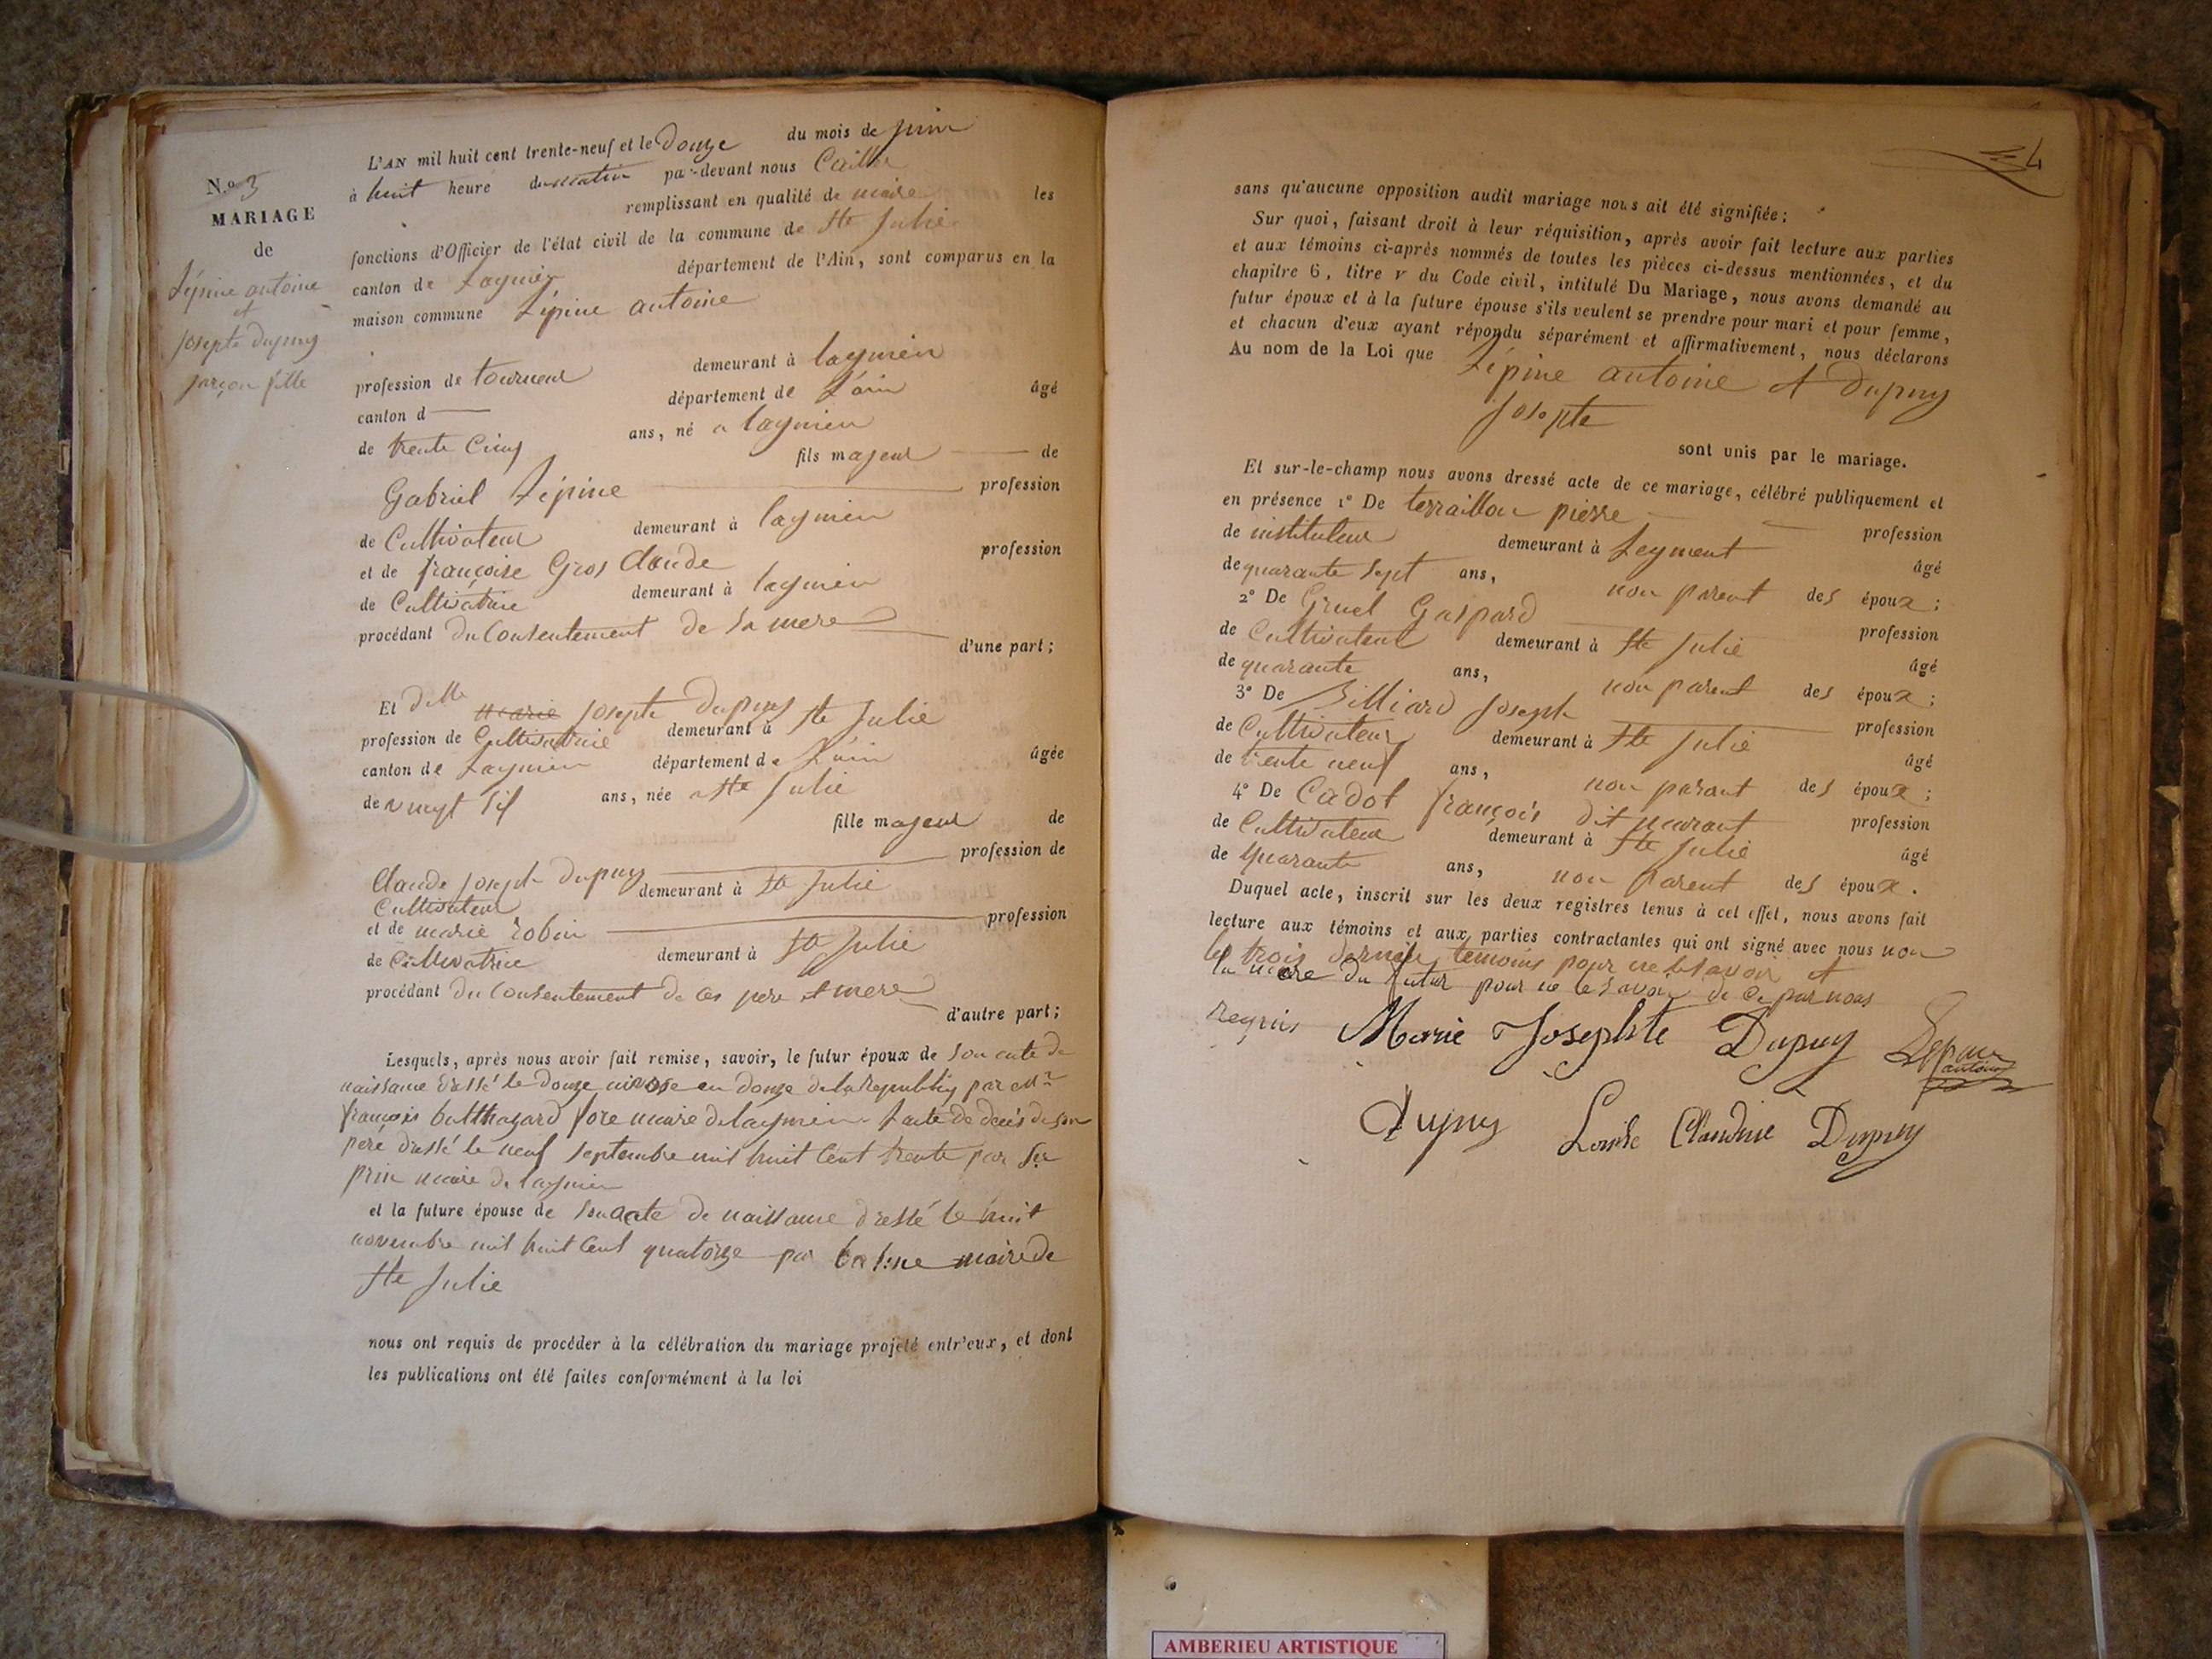 N.o 3
MARIAGE
de
Lépine antoine
et
Josepte dupuy
garçon fille
L'AN mil huit cent trente-neuf et le Douze du mois de juin
à huit heure du matin par-devant nous
remplissant en qualité de maire les
fonctions d'Officier de l'état civil de la commune de Ste Julie
canton de Lagnieu département de l'Ain, sont comparus en la
maison commune Lépine antoine
profession de tourneur demeurant à laymen
canton d département de L'ain âgé
de trente Cinq ans, né a laymen
fils majeur de
Gabriel Lépine profession
de Cultivateur demeurant à laymen
et de françoise Gros Claude profession
de Cultivatrice demeurant à laymen
procédant du Consentement de sa mere
d'une part;
Et dlle marie Josepte dupuy
profession de Cultivatrice demeurant à Ste Julie
canton de département de L'ain âgée
de vingt ans, née a Ste Julie
fille majeur de
Claude joseph dupuy profession de
Cultivateur demeurant à Ste Julie
et de marie robin profession
de Cultivatrice demeurant à Ste Julie
procédant du Consentement de ces pere et mere
d'autre part;
Lesquels, après nous avoir fait remise, savoir, le futur époux de son acte de
naissance dressé le douze nivose en douze de la republiq par Mr
françois balthazard fore maire de laymen. Lacte de deces de son
pere dressé le neuf septembre mil huit Cent trente par
maire de laymen
et la future épouse de son acte de naissance dressé le huit
novembre mil huit Cent quatorze par maire de
Ste Julie
nous ont requis de procéder à la célébration du mariage projeté entr'eux, et dont
les publications ont été faites conformément à la loi
4
sans qu'aucune opposition audit mariage nous ait été signifiée;
Sur quoi, faisant droit à leur réquisition, après avoir fait lecture aux parties
et aux témoins ci-après nommés de toutes les pièces ci-dessus mentionnées, et du
chapitre 6, titre v du Code civil, intitulé Du Mariage, nous avons demandé au
futur époux et à la future épouse s'ils veulent se prendre pour mari et pour femme,
et chacun d'eux ayant répondu séparément et affirmativement, nous déclarons
Au nom de la Loi que Lépine antoine et dupuy
Josepte
sont unis par le mariage.
Et sur-le-champ nous avons dressé acte de ce mariage, célébré publiquement et
en présence 1° De terraillon pierre profession
de instituteur demeurant à Leyment âgé
de quarante sept ans, non parent des époux;
2° De Gruel Gaspard profession
de Cultivateur demeurant à Ste Julie âgé
de quarante ans, non parent des époux;
3° De Billiard Joseph profession
de Cultivateur demeurant à Ste Julie âgé
de trente neuf ans, non parant des époux;
4° De Cadot françois dit marant profession
de Cultivateur demeurant à Ste Julie âgé
de quarante ans, non parent des époux.
Duquel acte, inscrit sur les deux registres tenus à cet effet, nous avons fait
lecture aux témoins et aux parties contractantes qui ont signé avec nous non
les trois dernier temoins pour ne le savoir et
la mere du futur pour ne le savoir de ce par nous
requis Marie Josephte Dupuy Lépine
antoine
Dupuy Louise Claudine Dupuy
AMBERIEU ARTISTIQUE